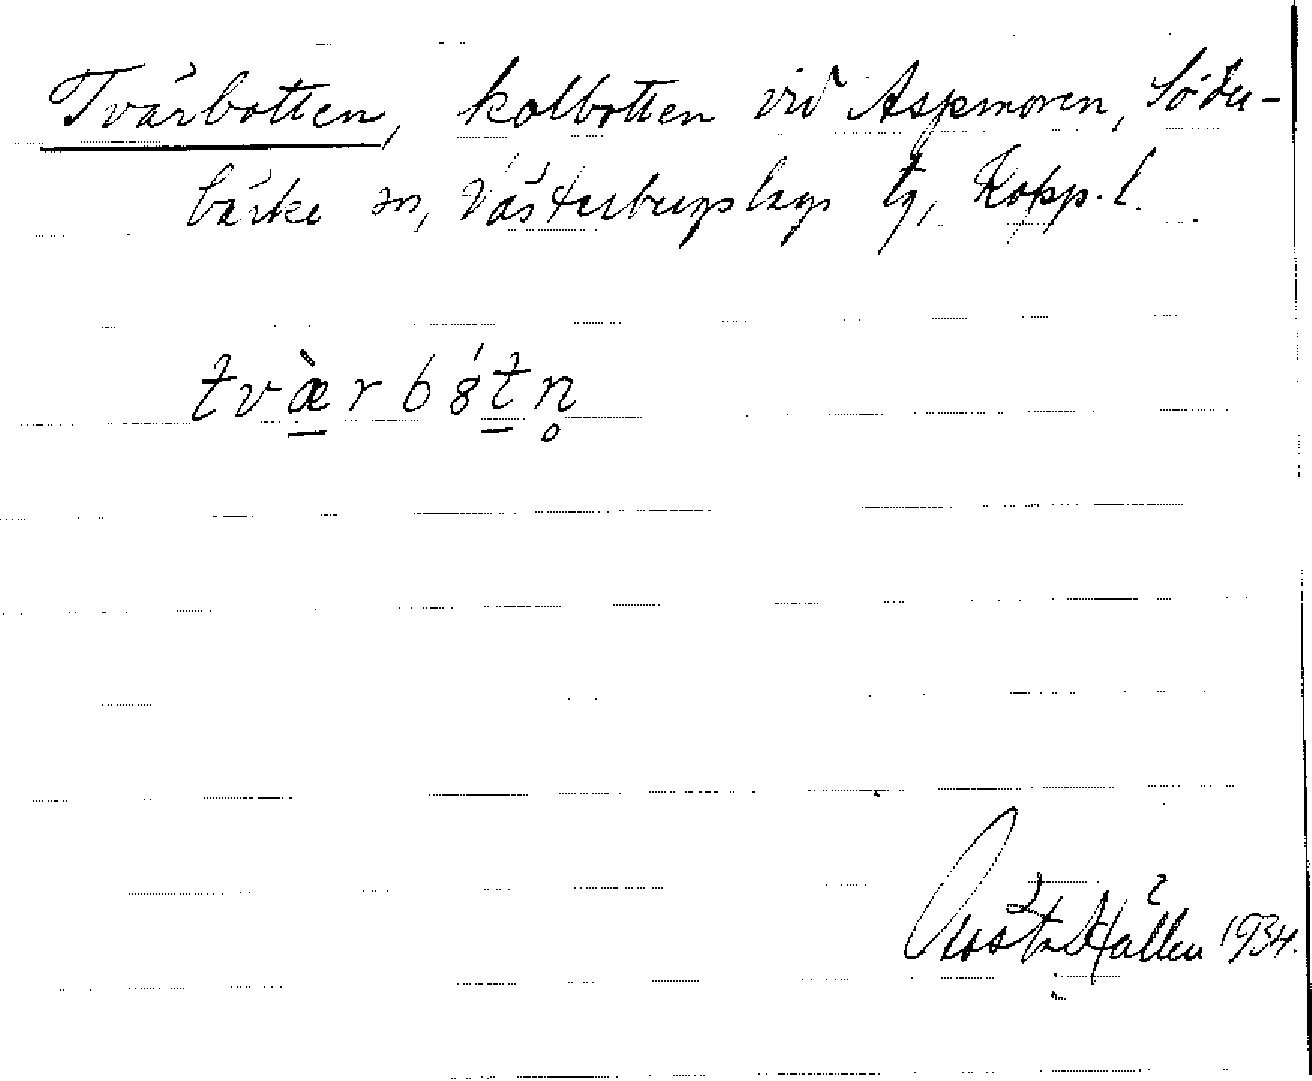 Tvärbotten, kolbotten vid Aspmoren, Söder-
bärke sn, Västerbergslags tg, Kopp. l.
tvæ̀rb8́tn̥
Gösta Hällen 1934.